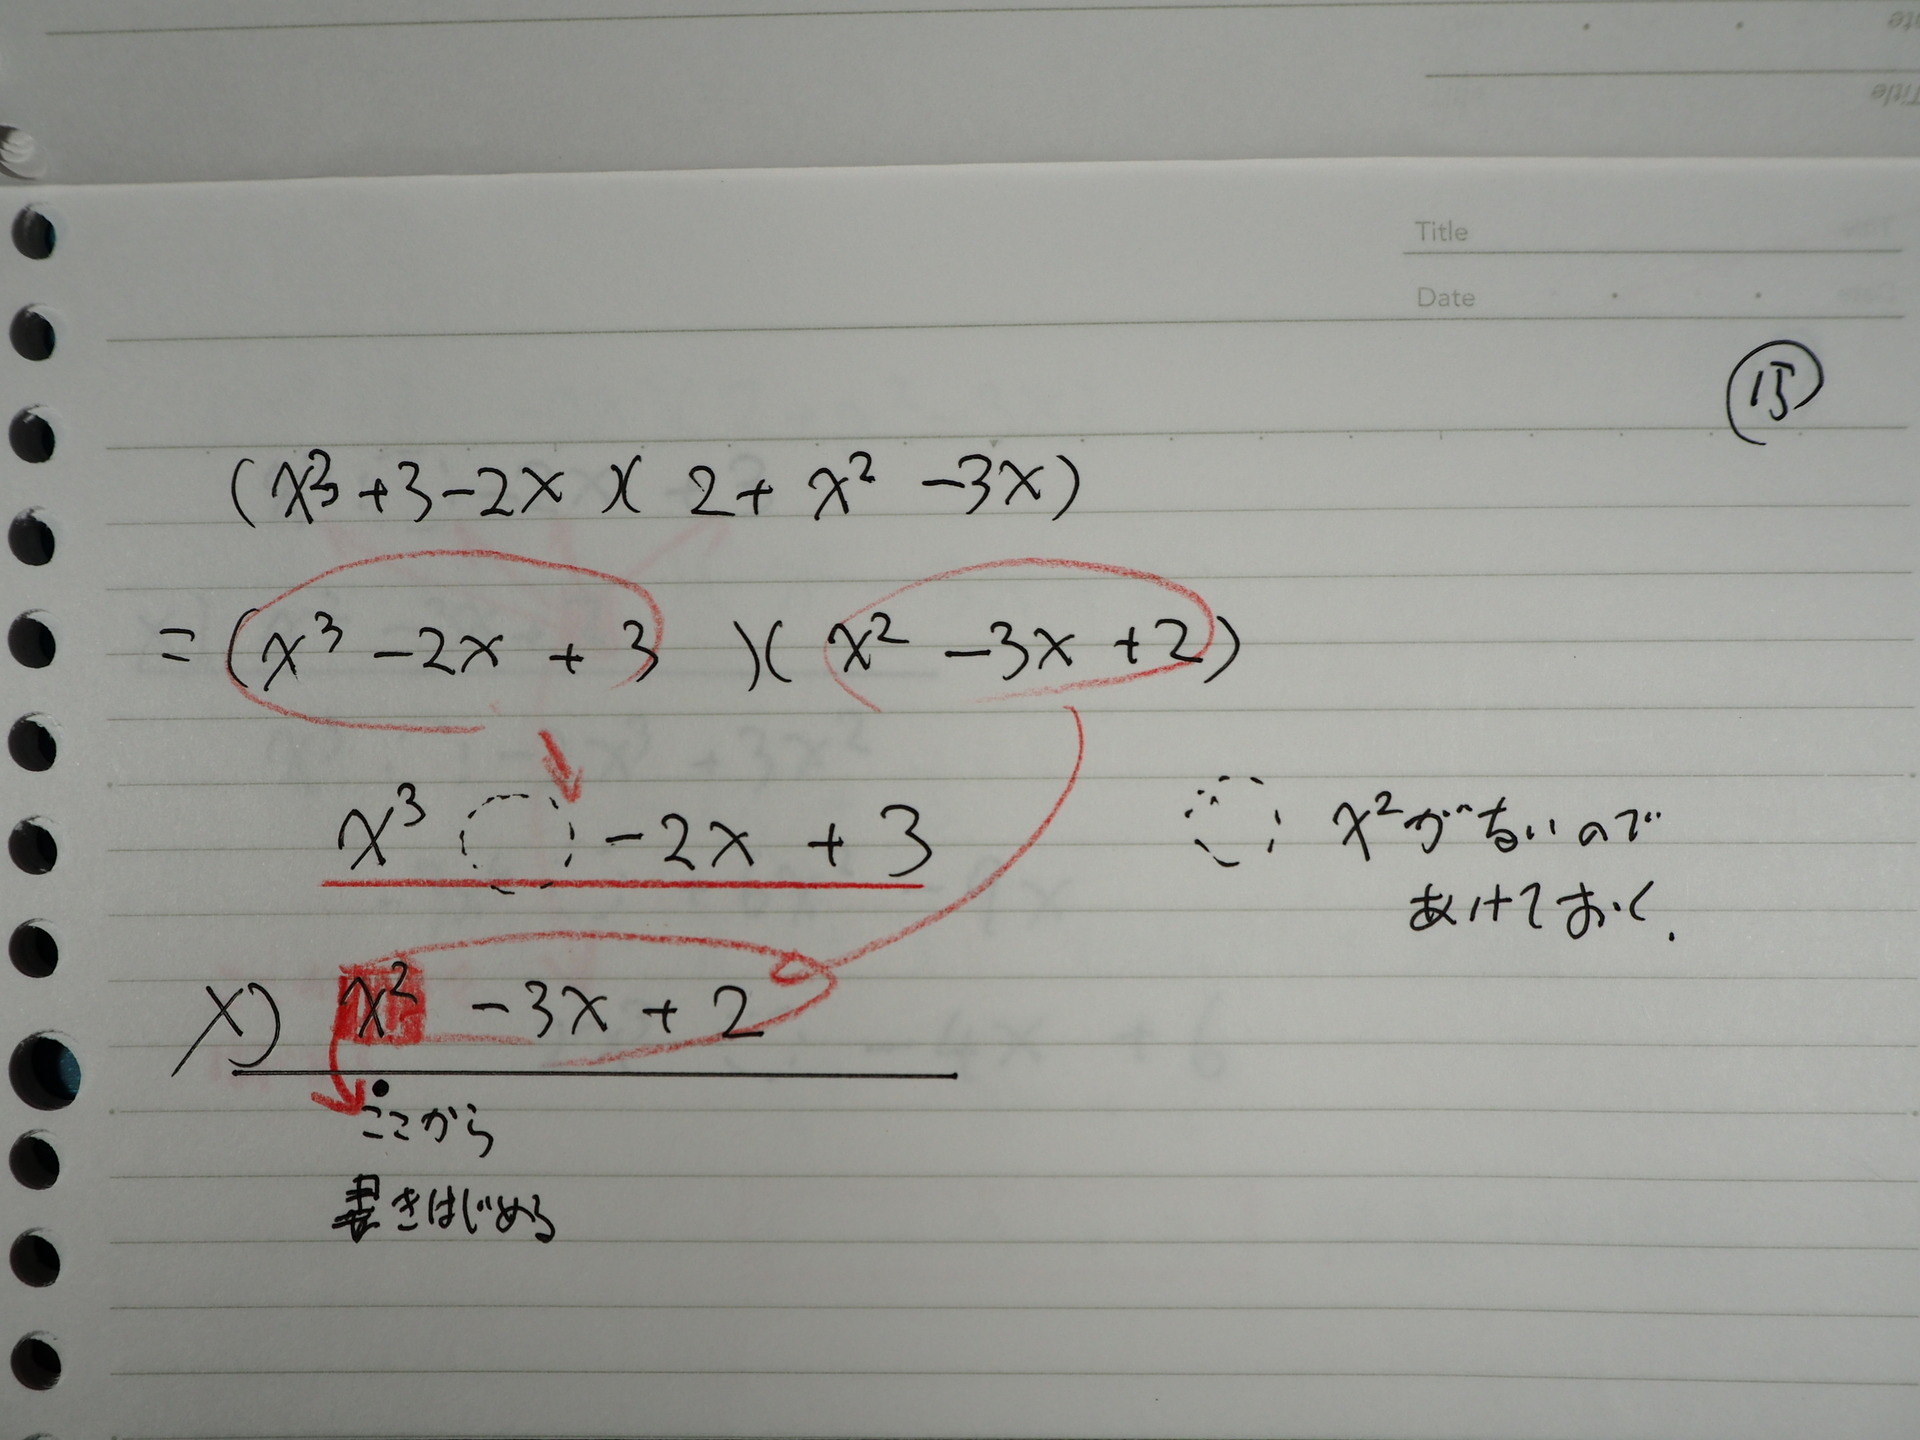 Title
Date
⑮
(x³+3-2x)(2+x²-3x)
=(x³-2x+3)(x²-3x+2)
x³ -2x+3
x²がないので
あけておく.
×) x²-3x+2
ここから
書きはじめる